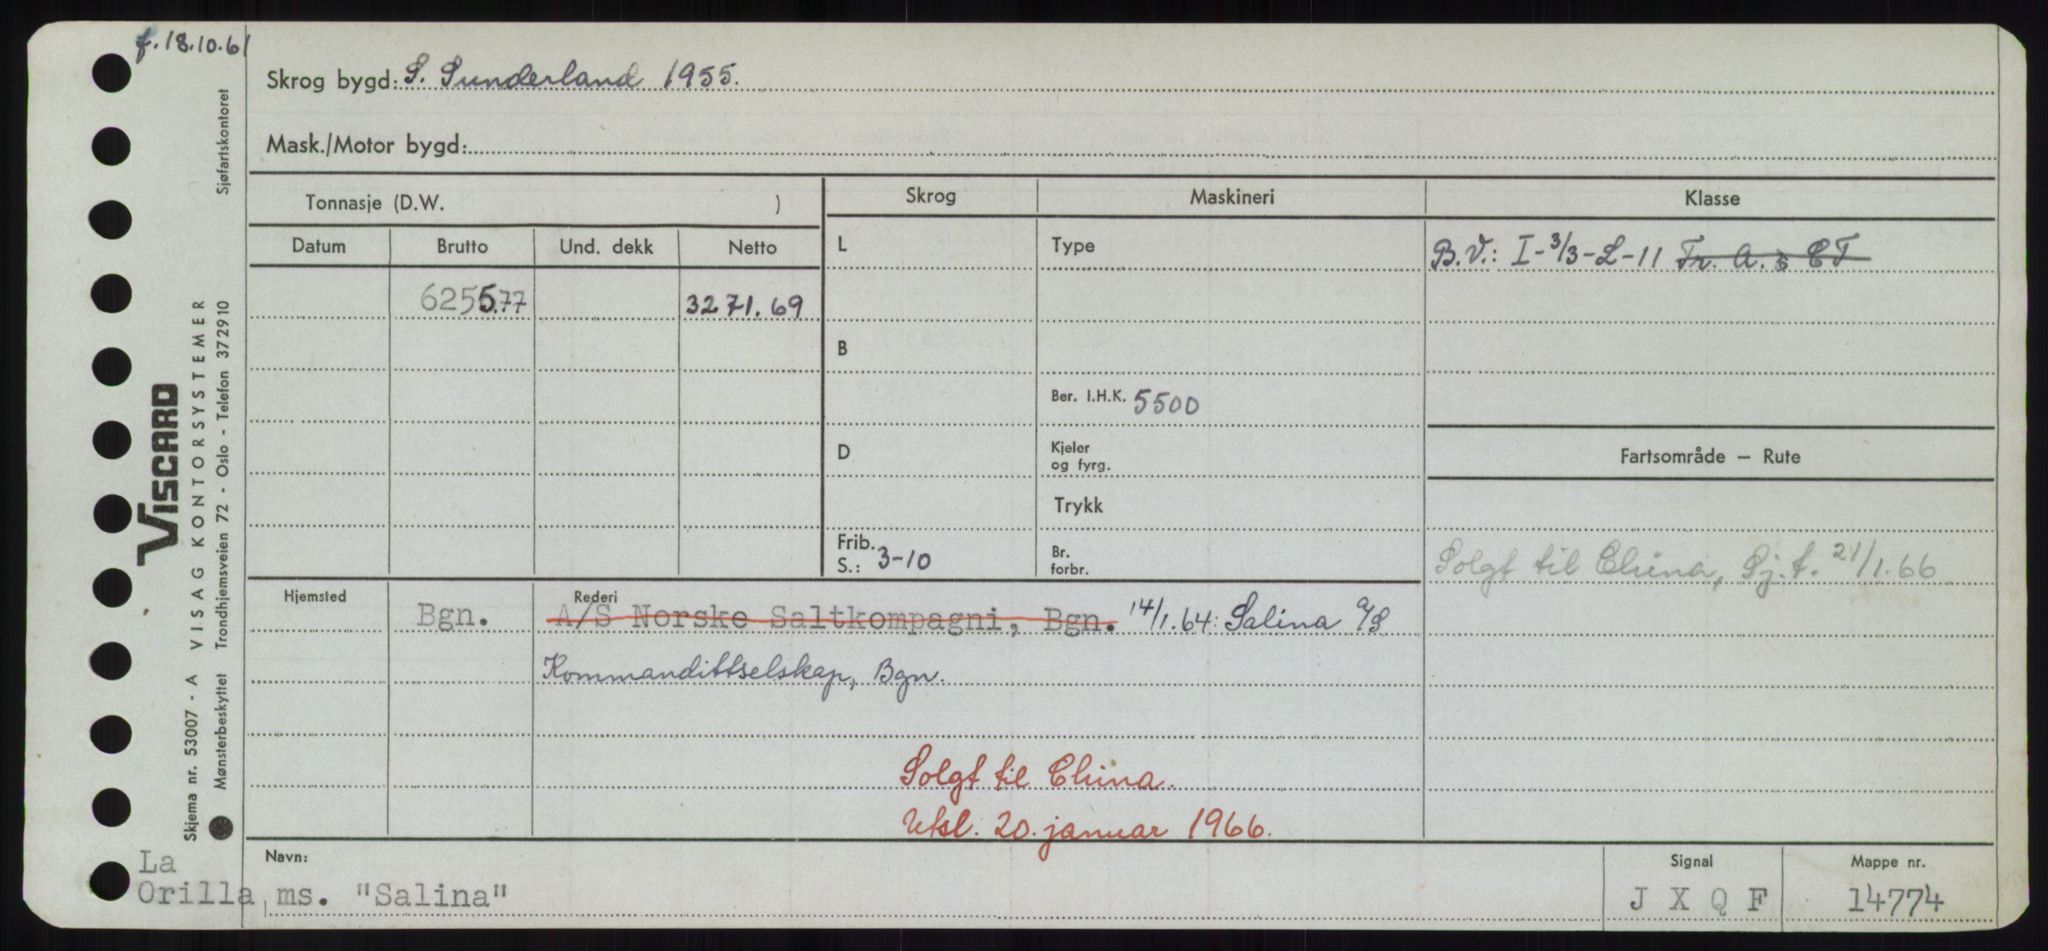 f. 18.10.61
Skrog bygd: S. Sunderland 1955.
Mask./Motor bygd:
Tonnasje (D.W. )
Skrog
Maskineri
Klasse
Datum Brutto Und. dekk Netto
L
Type
B.V.: I-3/3-L-11 Tr. A. & CT
6255.77 3271.69
B
Ber. I.H.K. 5500
D
Kjeler
og fyrg.
Fartsområde – Rute
Trykk
Frib.
S.: 3-10
Br.
forbr.
Solgt til China, Sj.f. 21/1.66
Hjemsted Bgn.
Rederi
A/S Norske Saltkompagni, Bgn. 14/1.64: Salina A/S
Kommandittselskap, Bgn.
Solgt til China.
Utsl. 20. januar 1966.
Navn:
La
Orilla ms. "Salina"
Signal
J X Q F
Mappe nr.
14774
VISCARD
Skjema nr. 53007 - A VISAG KONTORSYSTEMER
Mønsterbeskyttet Trondhjemsveien 72 - Oslo - Telefon 372910 Sjøfartskontoret